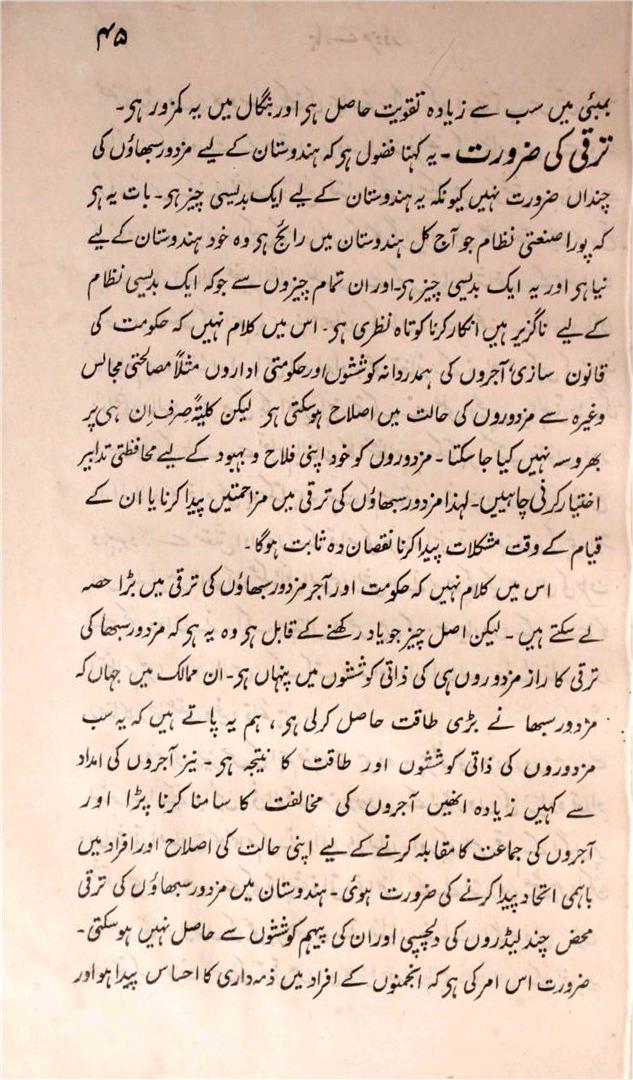 ۴۵
بمبئی میں سب سے زیادہ تقویت حاصل ہو اور بنگال میں یہ کمزور ہو۔
ترقی کی ضرورت ۔ یہ کہنا فضول ہو کہ ہندوستان کے لیے مزدور سبھاؤں کی
چنداں ضرورت نہیں کیونکہ یہ ہندوستان کے لیے ایک بدیسی چیز ہو۔ بات یہ ہو
کہ پورا صنعتی نظام جو آج کل ہندوستان میں رائج ہو وہ خود ہندوستان کے لیے
نیا ہو اور یہ ایک بدیسی چیز ہو۔ اور ان تمام چیزوں سے جو کہ ایک بدیسی نظام
کے لیے ناگزیر ہیں انکار کرنا کوتاہ نظری ہو۔ اس میں کلام نہیں کہ حکومت کی
قانون سازی، آجروں کی ہمدردانہ کوششوں اور حکومتی اداروں مثلاً مصالحتی مجالس
وغیرہ سے مزدوروں کی حالت میں اصلاح ہوسکتی ہو لیکن کلیۃً صرف اِن ہی پر
بھروسہ نہیں کیا جا سکتا۔ مزدوروں کو خود اپنی فلاح و بہبود کے لیے محافظتی تدابیر
اختیار کرنی چاہییں۔ لہٰذا مزدور سبھاؤں کی ترقی میں مزاحمتیں پیدا کرنا یا ان کے
قیام کے وقت مشکلات پیدا کرنا نقصان دہ ثابت ہوگا۔
اس میں کلام نہیں کہ حکومت اور آجر مزدور سبھاؤں کی ترقی میں بڑا حصہ
لے سکتے ہیں۔ لیکن اصل چیز جو یاد رکھنے کے قابل ہو وہ یہ ہو کہ مزدور سبھا کی
ترقی کا راز مزدوروں ہی کی ذاتی کوششوں میں پنہاں ہو۔ ان ممالک میں جہاں کہ
مزدور سبھا نے بڑی طاقت حاصل کرلی ہو، ہم یہ پاتے ہیں کہ یہ سب
مزدوروں کی ذاتی کوششوں اور طاقت کا نتیجہ ہو۔ نیز آجروں کی امداد
سے کہیں زیادہ انھیں آجروں کی مخالفت کا سامنا کرنا پڑا اور
آجروں کی جماعت کا مقابلہ کرنے کے لیے اپنی حالت کی اصلاح اور افراد میں
باہمی اتحاد پیدا کرنے کی ضرورت ہوئی۔ ہندوستان میں مزدور سبھاؤں کی ترقی
محض چند لیڈروں کی دلچسپی اور ان کی پیہم کوششوں سے حاصل نہیں ہوسکتی۔
ضرورت اس امر کی ہو کہ انجمنوں کے افراد میں ذمہ داری کا احساس پیدا ہو اور